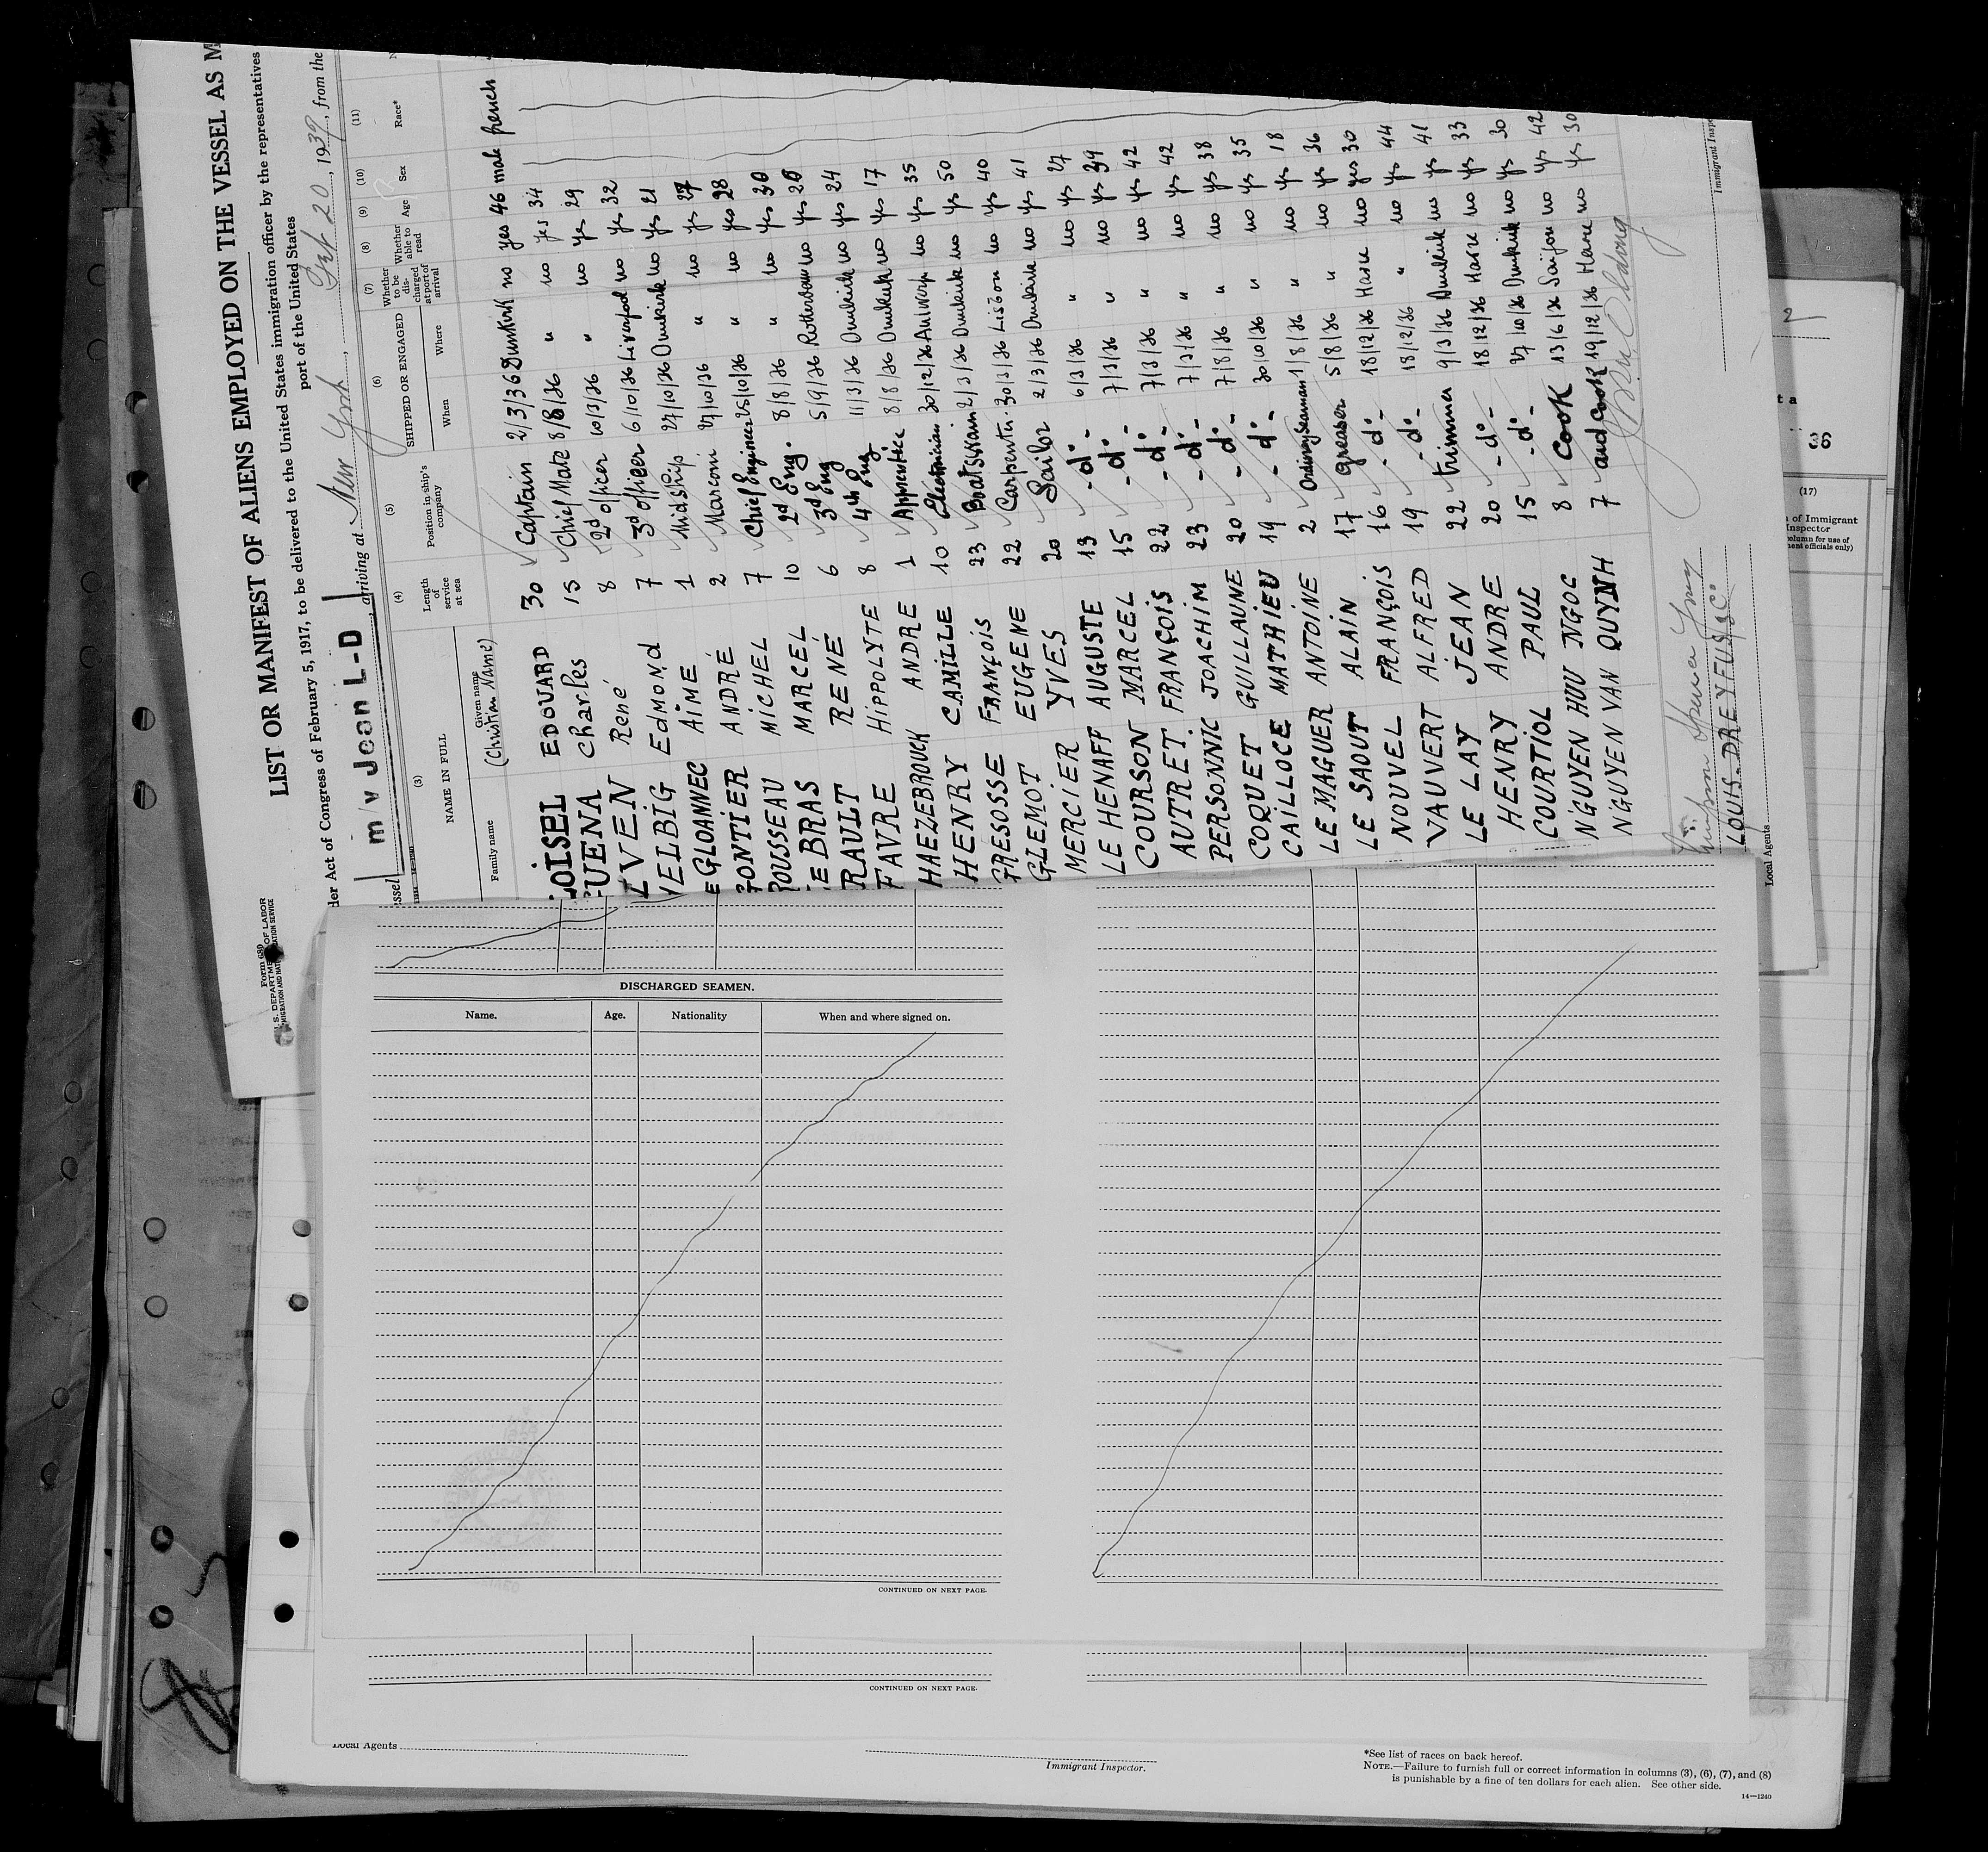 Form 680
U.S. DEPARTMENT OF LABOR
LIST OR MANIFEST OF ALIENS EMPLOYED ON THE VESSEL AS M
der Act of Congress of February 5, 1917, to be delivered to the United States immigration officer by the representatives
port of the United States
ssel m/v Jean L-D, arriving at New York, 193, from the
(3) (4) (5) (6) (7) (8) (9) (10) (11)
NAME IN FULL
Family name
Given name
(Christian Name)
Length of service at sea
Position in ship's company
SHIPPED OR ENGAGED
When
Where
Whether to be discharged at port of arrival
Whether able to read
Age
Sex
Race*
OISEL EDOUARD 30 Captain 2/3/36 Dunkirk no yes 46 male french
UENA Charles 15 Chief Mate 8/8/36 " no yes 34
VEN René 8 2d officer 10/3/36 " no yes 29
ELBIG EDMOND 7 3d officer 6/10/36 Liverpool no yes 32
E GLOANNEC AIMÉ 1 Midship 27/10/36 Dunkirk no yes 21
ONTIER ANDRÉ 2 Marconi 27/10/36 " no yes 27
OUSSEAU MICHEL 7 Chief Engineer 25/10/36 " no yes 28
E BRAS MARCEL 10 2d Eng. 8/8/36 " no yes 30
RAULT RENÉ 6 3d Eng 5/9/36 Rotterdam no yes 26
FAVRE HIPPOLYTE 8 4th Eng 11/3/36 Dunkirk no yes 24
HAEZEBROUCK ANDRE 1 Apprentice 8/8/36 Dunkirk no yes 17
HENRY CAMILLE 10 Electrician 30/12/36 Antwerp no yes 35
FRESOSSE FRANÇOIS 23 Boatswain 2/3/36 Dunkirk no yes 50
GLEMOT EUGENE 22 Carpenter 30/3/36 Lisbon no yes 40
MERCIER YVES 20 Sailor 2/3/36 Dunkirk no yes 41
LE HENAFF AUGUSTE 13 -d°- 6/3/36 " no yes 27
COURSON MARCEL 15 -d°- 7/3/36 " no yes 39
AUTRET FRANÇOIS 22 -d°- 7/3/36 " no yes 42
PERSONNIC JOACHIM 23 -d°- 7/3/36 " no yes 42
COQUET GUILLAUNE 20 -d°- 7/8/36 " no yes 38
CAILLOCE MATHIEU 19 -d°- 30/10/36 " no yes 35
LE MAGUER ANTOINE 2 Ordinary Seaman 1/8/36 " no yes 18
LE SAOUT ALAIN 17 greaser 5/8/36 " no yes 36
NOUVEL FRANÇOIS 16 -d°- 18/12/36 Havre no yes 30
VAUVERT ALFRED 19 -d°- 18/12/36 " no yes 44
LE LAY JEAN 22 trimmer 9/3/36 Dunkirk no yes 41
HENRY ANDRE 20 -d°- 18/12/36 Havre no yes 33
COURTIOL PAUL 15 -d°- 27/10/36 Dunkirk no yes 30
NGUYEN HUU NGOC 8 Cook 13/6/36 Saïgon no yes 42
NGUYEN VAN QUYNH 7 and cook 19/12/36 Havre no yes 30
LOUIS-DREYFUS & C°
Local Agents
Immigrant Inspe
2
36
(17)
of Immigrant
Inspector
DISCHARGED SEAMEN.
Name. Age. Nationality When and where signed on.
CONTINUED ON NEXT PAGE.
CONTINUED ON NEXT PAGE.
CONTINUED ON NEXT PAGE.
Local Agents
Immigrant Inspector.
*See list of races on back hereof.
NOTE.—Failure to furnish full or correct information in columns (3), (6), (7), and (8)
is punishable by a fine of ten dollars for each alien. See other side.
14—1240